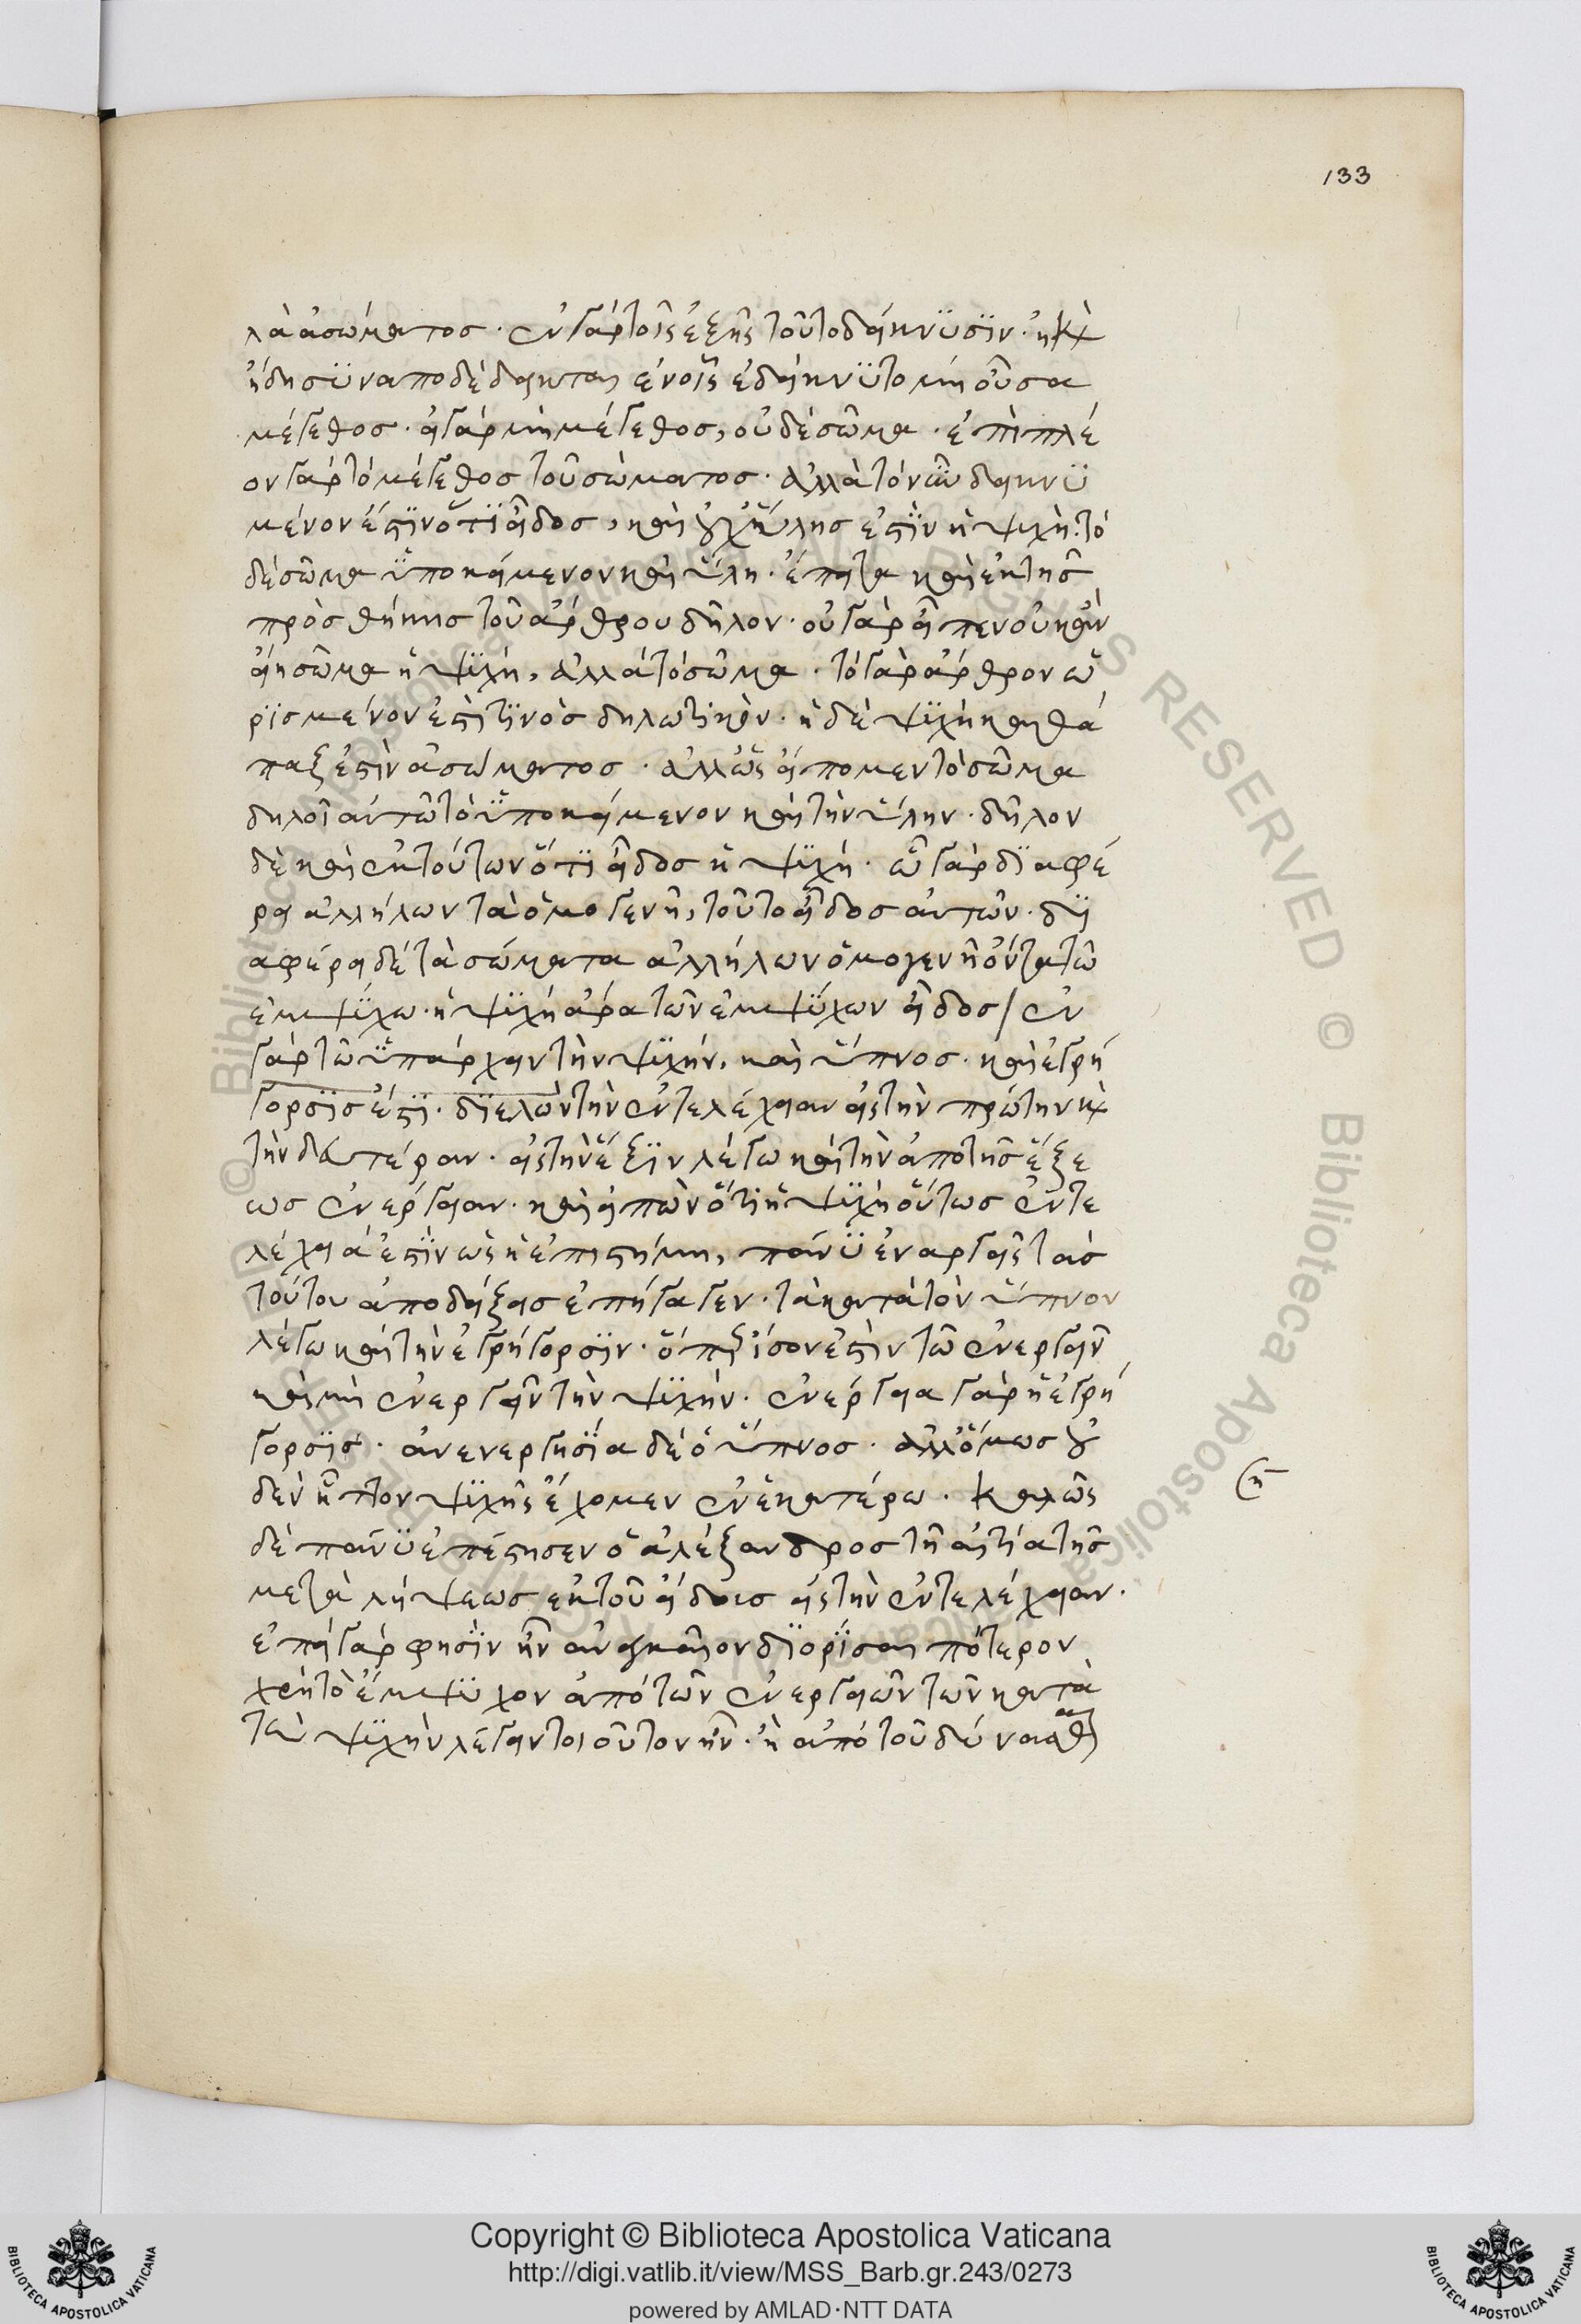 133
λὰ ἀσώματος· ἐν γὰρ τοῖς ἑξῆς τοῦτο δείκνυσιν· ἢ καὶ
ἤδη συναποδέδεικται ἐν οἷς ἐδείκνυτο μὴ οὖσα
μέγεθος· εἰ γὰρ μὴ μέγεθος, οὐδὲ σῶμα· ἐπὶ πλέ
ον γὰρ τὸ μέγεθος τοῦ σώματος· ἀλλὰ τὸ νῦν δεικνύ
μενόν ἐστιν ὅτι εἶδος, καὶ οὐχ ὕλης ἐστὶν ἡ ψυχή· τὸ
δὲ σῶμα ὑποκείμενον καὶ ὕλη· ἔπειτα καὶ ἐκ τῆς
προσθήκης τοῦ ἄρθρου δῆλον· οὐ γὰρ εἶπεν οὐκ ἂν
εἴη σῶμα ἡ ψυχή, ἀλλὰ τὸ σῶμα· τὸ γὰρ ἄρθρον ὡ
ρισμένον ἐστί τινος δηλωτικόν· ἡ δὲ ψυχὴ καθά
παξ ἐστὶν ἀσώματος· ἀλλ' ὡς εἴπομεν τὸ σῶμα
δηλοῖ αὐτῷ τὸ ὑποκείμενον καὶ τὴν ὕλην· δῆλον
δὲ καὶ ἐκ τούτων ὅτι εἶδος ἡ ψυχή· ᾧ γὰρ διαφέ
ρει ἀλλήλων τὰ ὁμογενῆ, τοῦτο εἶδος αὐτῶν· δι
αφέρει δὲ τὰ σώματα ἀλλήλων ὁμογενῆ ὄντα τῷ
ἐμψύχῳ· ἡ ψυχὴ ἄρα τῶν ἐμψύχων εἶδος / ἐν
γὰρ τῷ ὑπάρχειν τὴν ψυχήν, καὶ ὕπνος· καὶ ἐγρή
γορσίς ἐστι· διελὼν τὴν ἐντελέχειαν εἰς τὴν πρώτην καὶ
τὴν δευτέραν· εἰς τὴν ἕξιν λέγω καὶ τὴν ἀπὸ τῆς ἕξε
ως ἐνέργειαν· καὶ εἰπὼν ὅτι ἡ ψυχὴ οὕτως ἐντε
λέχειά ἐστιν ὡς ἡ ἐπιστήμη, πάνυ ἐναργεῖς τὰς
τούτου ἀποδείξεις ἐπήγαγεν· τὰ κατὰ τὸν ὕπνον
λέγω καὶ τὴν ἐγρήγορσιν· ὅπερ ἴσον ἐστὶν τῷ ἐνεργεῖν
καὶ μὴ ἐνεργεῖν τὴν ψυχήν· ἐνέργεια γὰρ ἡ ἐγρή
γορσις· ἀνενεργησία δὲ ὁ ὕπνος· ἀλλ' ὅμως οὐ
δὲν ἧττον ψυχῆς ἔχομεν ἐν ἑκατέρῳ· καλῶς
δὲ πάνυ ἐπέστησεν ὁ ἀλέξανδρος τῇ αἰτίᾳ τῆς
μεταλήψεως ἐκ τοῦ εἴδους εἰς τὴν ἐντελέχειαν·
ἐπεὶ γάρ φησιν ἦν ἀναγκαῖον διορίσαι πότερον
χρὴ τὸ ἔμψυχον ἀπὸ τῶν ἐνεργειῶν τῶν κατὰ
τὴν ψυχὴν λέγειν τοιοῦτον ἦν· ἢ ἀπὸ τοῦ δύνασθαι